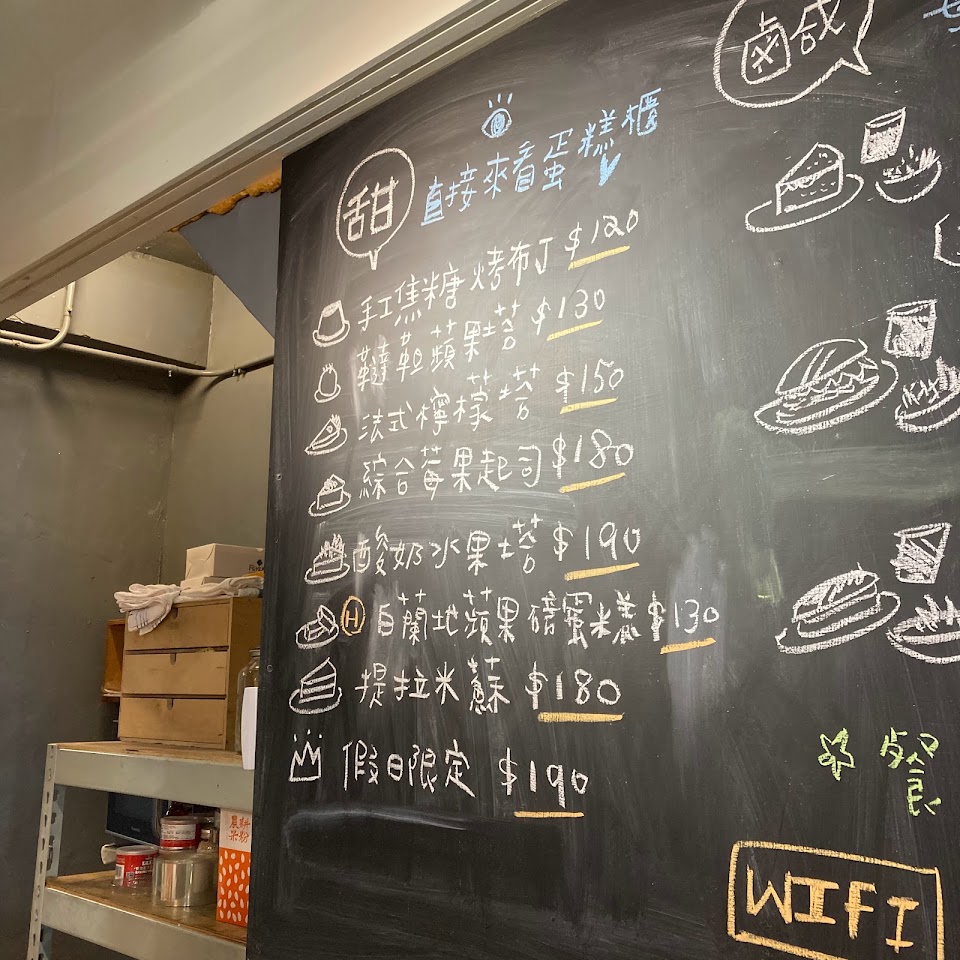 甜
直接來看蛋糕櫃
手工焦糖烤布丁 $120
韃靼蘋果塔 $130
法式檸檬塔 $150
綜合莓果起司 $180
酸奶水果塔 $190
H 白蘭地蘋果磅蜜米糕 $130
提拉米蘇 $180
假日限定 $190
鹵咸
餐
WIFI